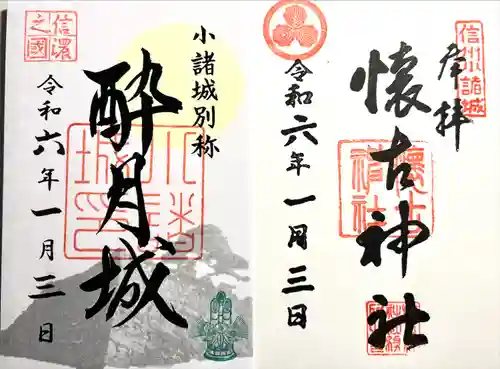 奉拝
信州小諸城
懐古神社
懐古神社
令和六年一月三日
小諸城別称
酔月城
信濃之國
令和六年一月三日